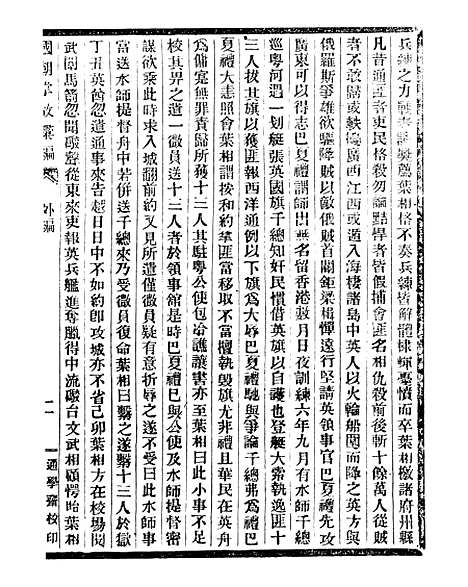 兵練之力戰者請獎葉相格不奏兵練皆解體棣煇憂憤而卒葉相檄諸府州縣
凡昔通匪者吏民格殺勿論黠學者皆假捕會匪名相仇殺前後斬十餘萬人從賊
者不敢歸或軼擾廣西江西或遁入海棲諸島中英人以火輪船闌而降之英方與
俄羅斯爭雄欲驅降賊以敵俄賊首關鉅梁楫憚遠行堅請英領事官巴夏禮先攻
廣東可以得志巴夏禮請師出無名留香港數月日夜訓練六年九月有水師千總
巡粵河遇一划艇張英國旗千總知奸民慣借英旗以自護也登艇大索執逸匪十
三人拔其旗以獲匪報西洋通例以下旗爲大辱巴夏禮馳與爭論千總弗爲禮巴
夏禮大恚照會葉相謂按和約拏匪當移取不當擅執毀旗尤非禮且華民在英舟
爲傭寃無罪責歸所獲十三人其駐粵公使包呤護書亦至葉相曰此小事不足
校其畀之遣一微員送十三人者於領事館是時巴夏禮已與公使及水師提督密
謀欲乘此時求入城翻前約又見所遣僅微員疑有意折辱之遂不受曰此水師事
當送水師提督舟中若併送千總來乃受微員復命葉相曰繫之遂繫十三人於獄
丁丑英酋忽遣通事來告越日日中不如約卽攻城亦不省己卯葉相方在校場閱
武闈馬箭忽聞礮聲從東來吏報英兵艦進奪臘得中流礮台文武相顧愕眙葉相
國朝掌故彙編 外編
二一
通學齋校印